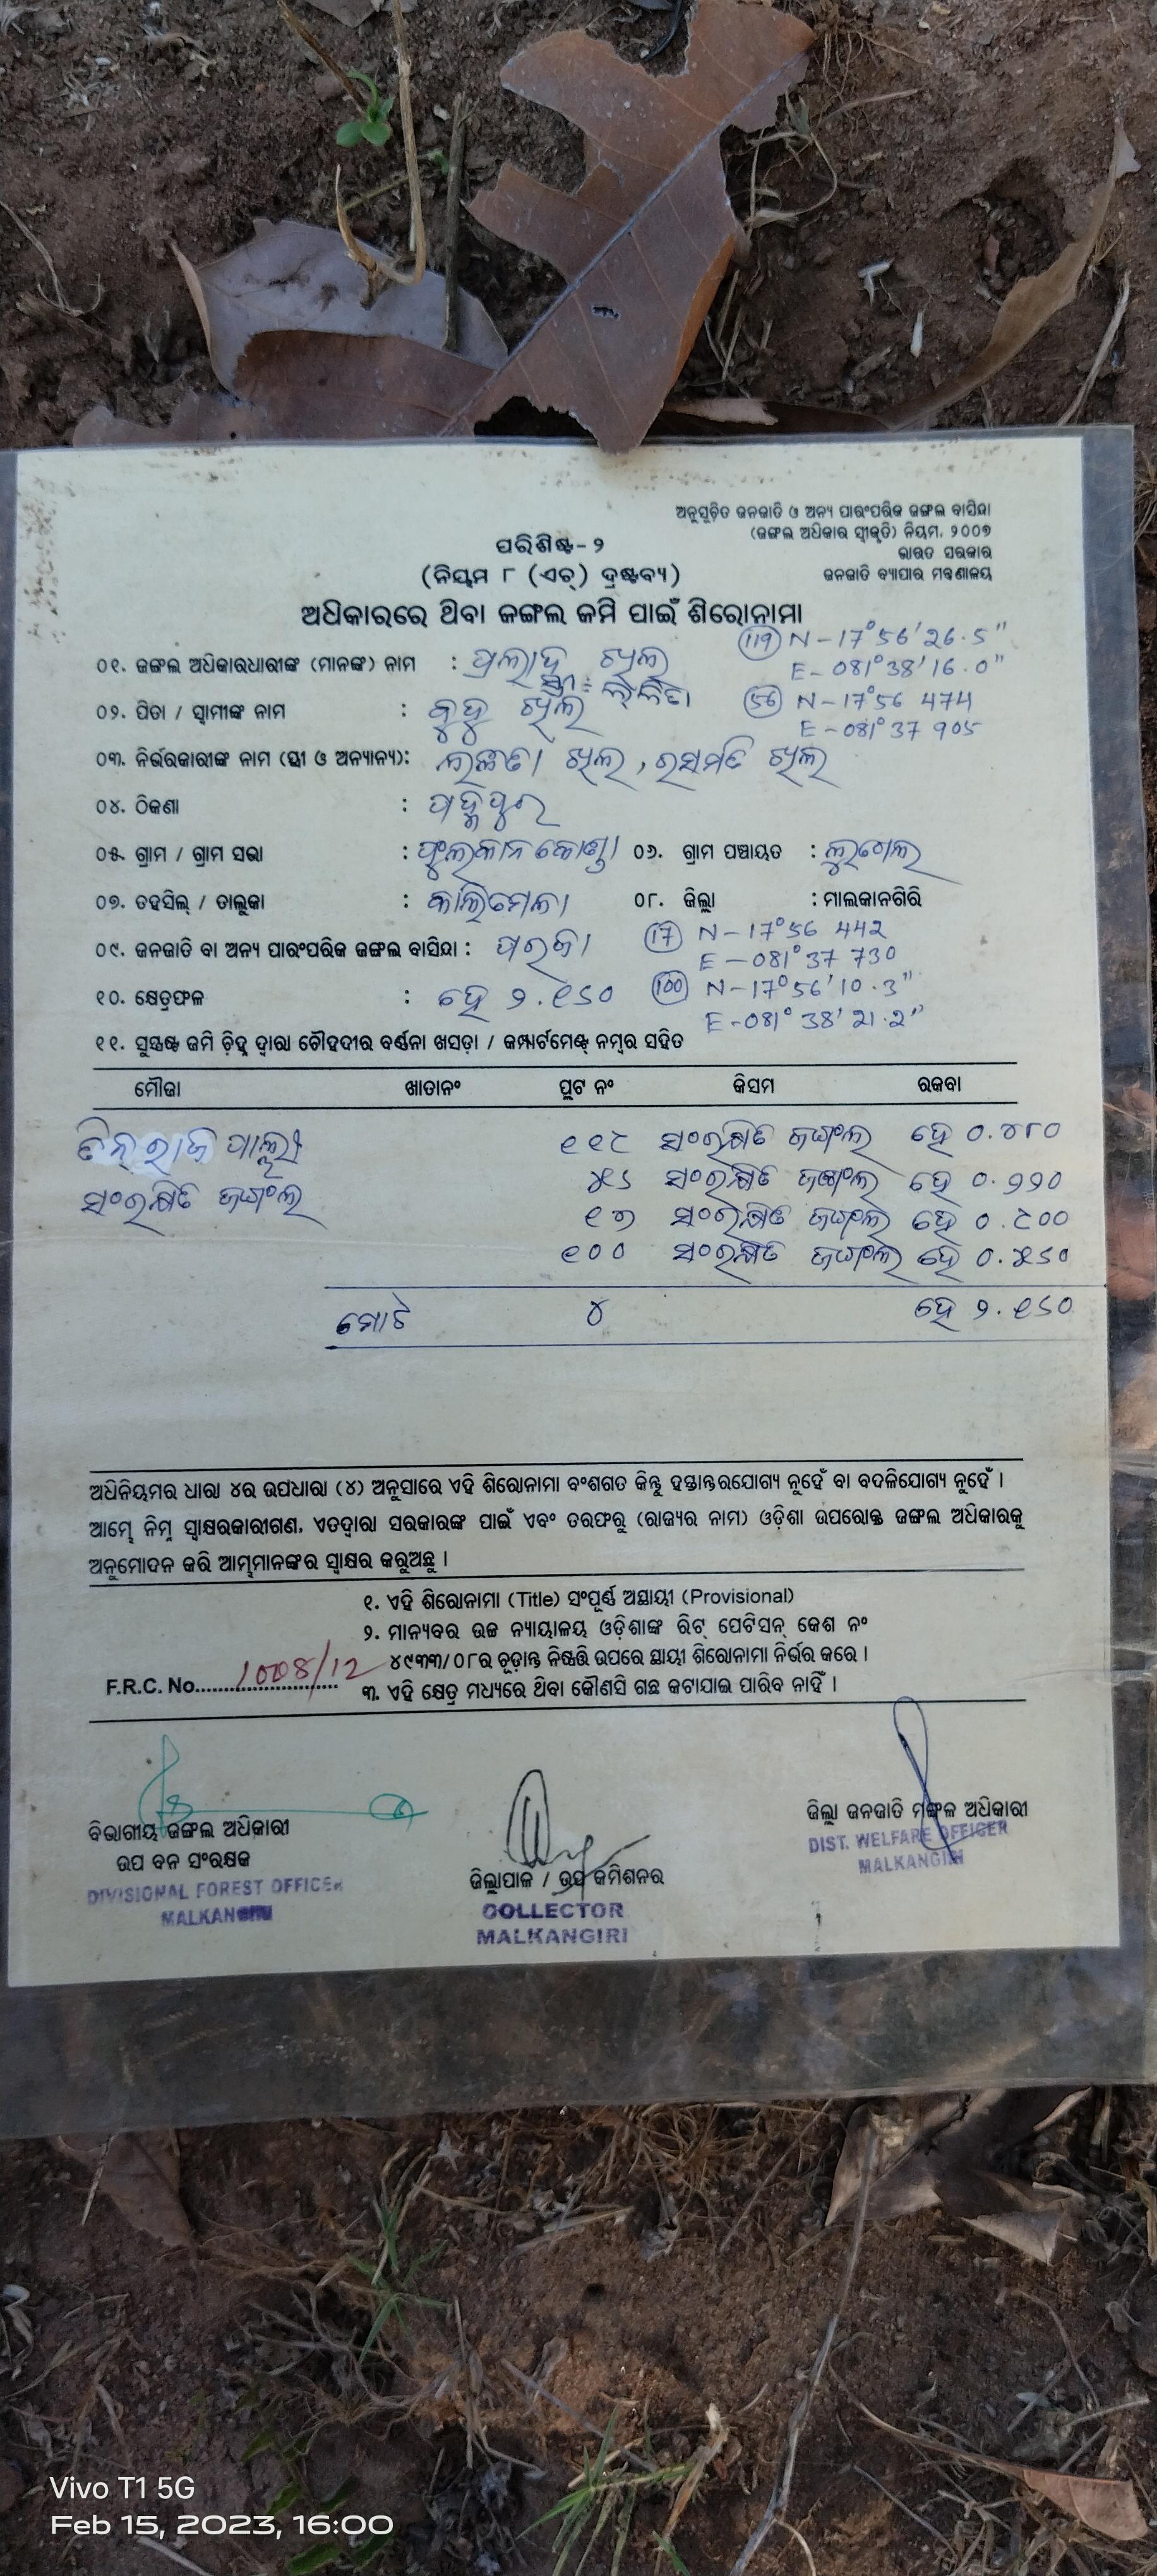 ଅନୁସୂଚିତ ଜନଜାତି ଓ ଅନ୍ୟ ପାରଂପରିକ ଜଙ୍ଗଲ ବାସିନ୍ଦା
(ଜଙ୍ଗଲ ଅଧିକାର ସ୍ୱୀକୃତି) ନିୟମ, ୨୦୦୭
ଭାରତ ସରକାର
ଜନଜାତି ବ୍ୟାପାର ମନ୍ତ୍ରଣାଳୟ
ପରିଶିଷ୍ଟ-୨
(ନିୟମ ୮ (ଏଚ୍) ଦ୍ରଷ୍ଟବ୍ୟ)
ଅଧିକାରରେ ଥିବା ଜଙ୍ଗଲ ଜମି ପାଇଁ ଶିରୋନାମା
(119) N-17°56'26.5"
E-081°38'16.0"
୦୧. ଜଙ୍ଗଲ ଅଧିକାରଧାରୀଙ୍କ (ମାନଙ୍କ) ନାମ : ଖିଲ
ସ୍ତ୍ରୀ :
(56) N-17°56 474
E-081°37 905
୦୨. ପିତା / ସ୍ୱାମୀଙ୍କ ନାମ : ଖିଲ
୦୩. ନିର୍ଭରକାରୀଙ୍କ ନାମ (ସ୍ତ୍ରୀ ଓ ଅନ୍ୟାନ୍ୟ): ଖିଲ , ରସମତି ଖିଲ
୦୪. ଠିକଣା :
୦୫. ଗ୍ରାମ / ଗ୍ରାମ ସଭା : ୦୬. ଗ୍ରାମ ପଞ୍ଚାୟତ :
୦୭. ତହସିଲ୍ / ତାଲୁକା : କାଲିମେଳା ୦୮. ଜିଲ୍ଲା : ମାଲକାନଗିରି
୦୯. ଜନଜାତି ବା ଅନ୍ୟ ପାରଂପରିକ ଜଙ୍ଗଲ ବାସିନ୍ଦା : ପରଜା (17) N-17°56 442
E-081°37 730
୧୦. କ୍ଷେତ୍ରଫଳ : ହେ ୨.୧୬୦ (100) N-17°56'10.3"
E-081°38'21.2"
୧୧. ସୁସ୍ପଷ୍ଟ ଜମି ଚିହ୍ନ ଦ୍ୱାରା ଚୌହଦୀର ବର୍ଣ୍ଣନା ଖସଡ଼ା / କମ୍ପାର୍ଟମେଣ୍ଟ ନମ୍ବର ସହିତ
ମୌଜା ଖାତାନଂ ପ୍ଲଟ ନଂ କିସମ ରକବା
୧୧୯ ସଂରକ୍ଷିତ ଜଙ୍ଗଲ ହେ ୦.୪୮୦
୫୬ ସଂରକ୍ଷିତ ଜଙ୍ଗଲ ହେ ୦.୨୨୦
ସଂରକ୍ଷିତ ଜଙ୍ଗଲ
୧୭ ସଂରକ୍ଷିତ ଜଙ୍ଗଲ ହେ ୦.୯୦୦
୧୦୦ ସଂରକ୍ଷିତ ଜଙ୍ଗଲ ହେ ୦.୫୬୦
ମୋଟ ୪ ହେ ୨.୧୬୦
ଅଧିନିୟମର ଧାରା ୪ର ଉପଧାରା (୪) ଅନୁସାରେ ଏହି ଶିରୋନାମା ବଂଶଗତ କିନ୍ତୁ ହସ୍ତାନ୍ତରଯୋଗ୍ୟ ନୁହେଁ ବା ବଦଳିଯୋଗ୍ୟ ନୁହେଁ ।
ଆମ୍ଭେ ନିମ୍ନ ସ୍ୱାକ୍ଷରକାରୀଗଣ, ଏତଦ୍ୱାରା ସରକାରଙ୍କ ପାଇଁ ଏବଂ ତରଫରୁ (ରାଜ୍ୟର ନାମ) ଓଡ଼ିଶା ଉପରୋକ୍ତ ଜଙ୍ଗଲ ଅଧିକାରକୁ
ଅନୁମୋଦନ କରି ଆମ୍ଭମାନଙ୍କର ସ୍ୱାକ୍ଷର କରୁଅଛୁ ।
୧. ଏହି ଶିରୋନାମା (Title) ସଂପୂର୍ଣ୍ଣ ଅସ୍ଥାୟୀ (Provisional)
୨. ମାନ୍ୟବର ଉଚ୍ଚ ନ୍ୟାୟାଳୟ ଓଡ଼ିଶାଙ୍କ ରିଟ୍ ପେଟିସନ୍ କେଶ ନଂ
୪୯୩୩/୦୮ର ଚୂଡ଼ାନ୍ତ ନିଷ୍ପତ୍ତି ଉପରେ ସ୍ଥାୟୀ ଶିରୋନାମା ନିର୍ଭର କରେ ।
F.R.C. No. 1008/12 ୩. ଏହି କ୍ଷେତ୍ର ମଧ୍ୟରେ ଥିବା କୌଣସି ଗଛ କଟାଯାଇ ପାରିବ ନାହିଁ ।
ବିଭାଗୀୟ ଜଙ୍ଗଲ ଅଧିକାରୀ
ଉପ ବନ ସଂରକ୍ଷକ
DIVISIONAL FOREST OFFICER
MALKANGIRI
ଜିଲ୍ଲାପାଳ / ଉପ କମିଶନର
COLLECTOR
MALKANGIRI
ଜିଲ୍ଲା ଜନଜାତି ମଙ୍ଗଳ ଅଧିକାରୀ
DIST. WELFARE OFFICER
MALKANGIRI
Vivo T1 5G
Feb 15, 2023, 16:00